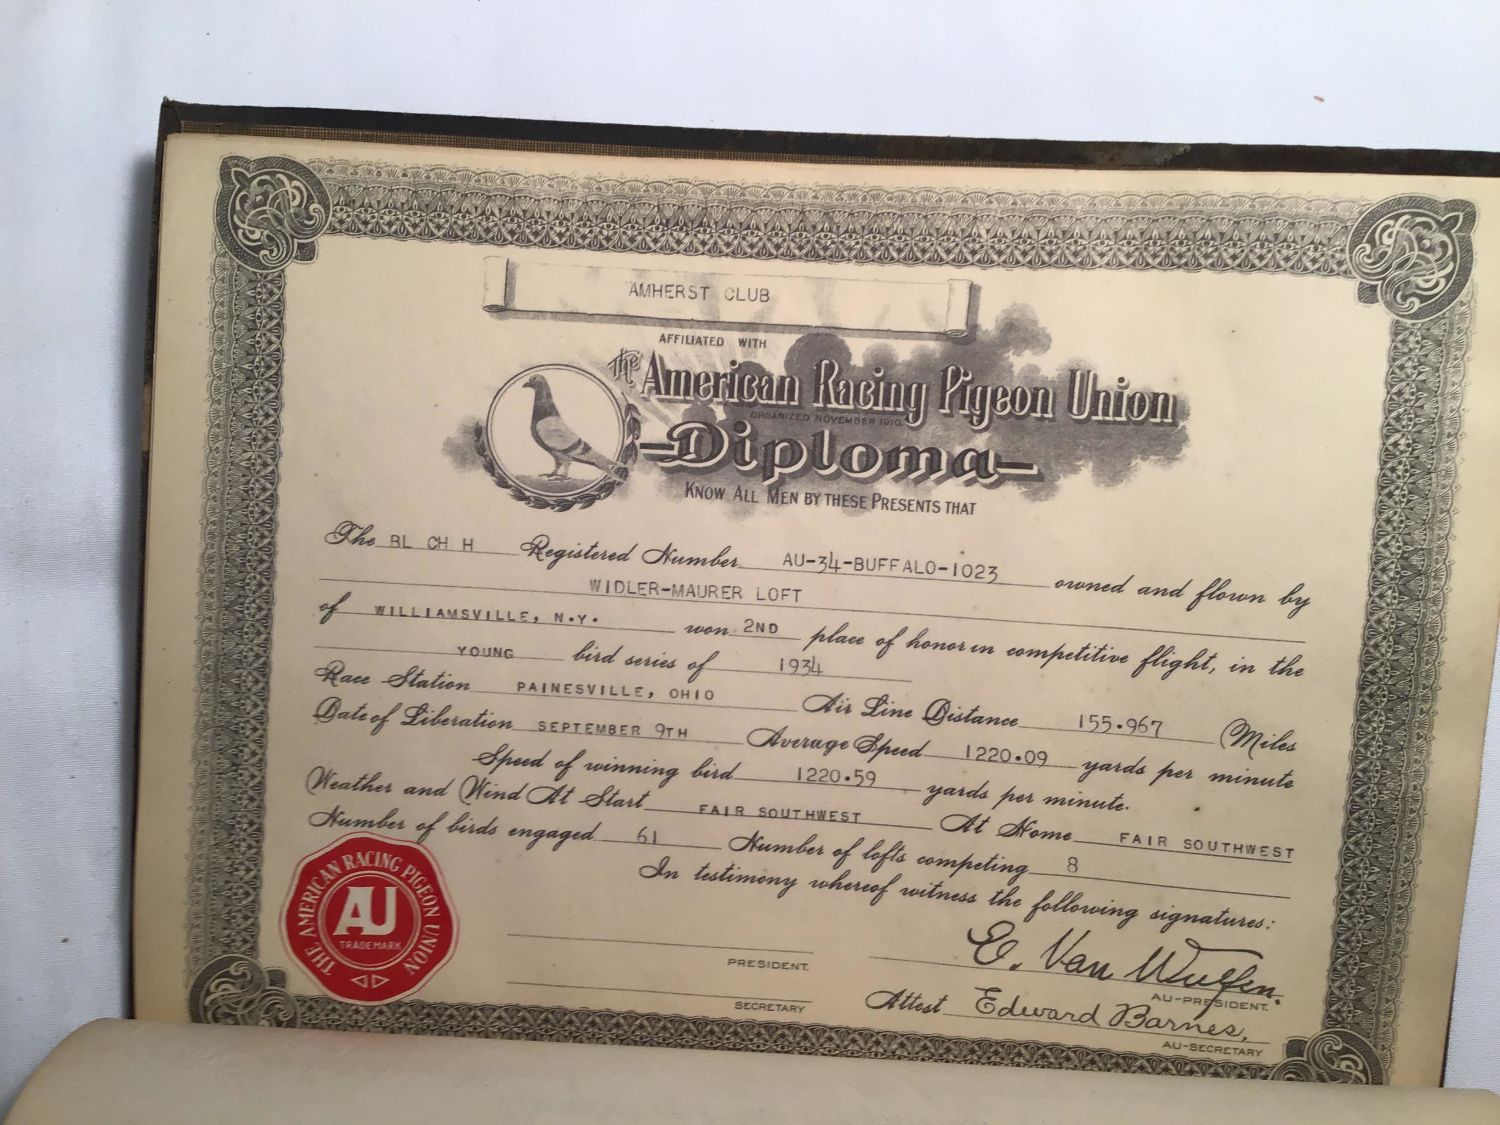 AMHERST CLUB
AFFILIATED WITH
The American Racing Pigeon Union
ORGANIZED NOVEMBER 1910.
Diploma
KNOW ALL MEN BY THESE PRESENTS THAT
The BL CH H Registered Number AU-34-BUFFALO-1023 owned and flown by
WIDLER-MAURER LOFT
of WILLIAMSVILLE, N.Y. won 2ND place of honor in competitive flight, in the
YOUNG bird series of 1934
Race Station PAINESVILLE, OHIO Air Line Distance 155.967 Miles
Date of Liberation SEPTEMBER 9TH Average Speed 1220.09 yards per minute
Speed of winning bird 1220.59 yards per minute.
Weather and Wind At Start FAIR SOUTHWEST At Home FAIR SOUTHWEST
Number of birds engaged 61 Number of lofts competing 8
In testimony whereof witness the following signatures:
THE AMERICAN RACING PIGEON UNION
AU
TRADE MARK
PRESIDENT.
E. Van Wulfen.
AU-PRESIDENT.
SECRETARY
Attest Edward Barnes,
AU-SECRETARY